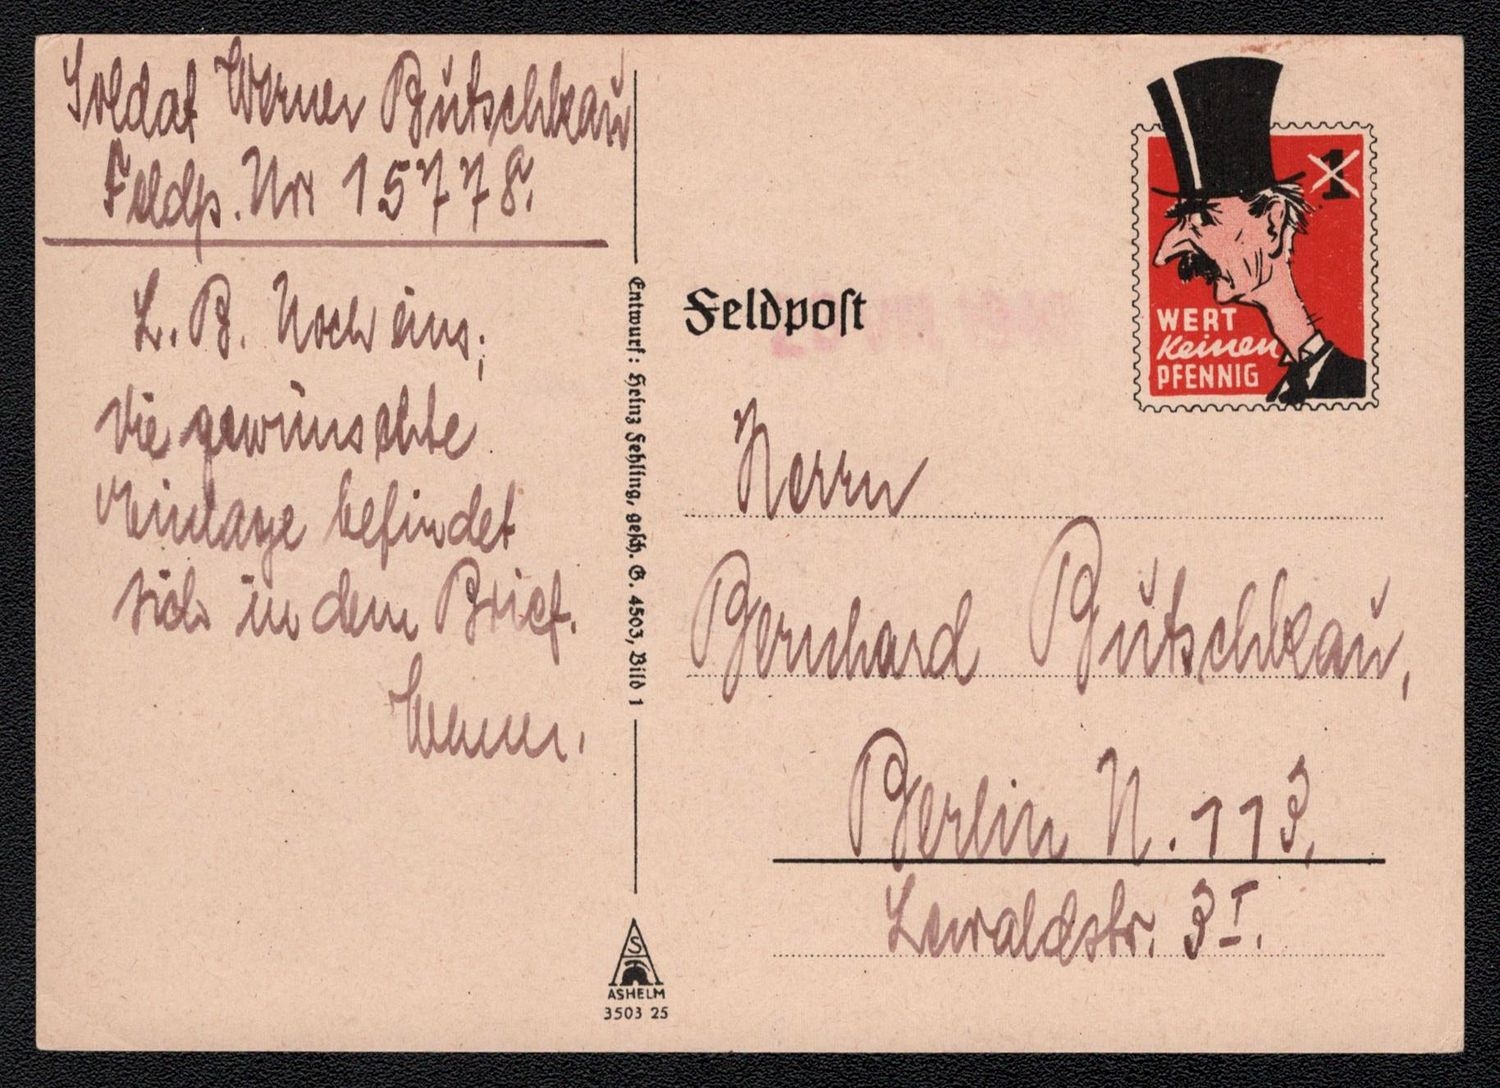 Soldat Werner Bütschkau
Feldp. Nr. 15778.
L. B. Noch eins;
die gewünschte
Einlage befindet
sich in dem Brief.
Werner.
Entwurf: Heinz Fehling, gesch. G. 4503, Bild 1
ASHELM
3503 25
1
WERT
Keinen
PFENNIG
Feldpost
Herrn
Bernhard Bütschkau,
Berlin N. 113,
Lewaldstr. 3 I.